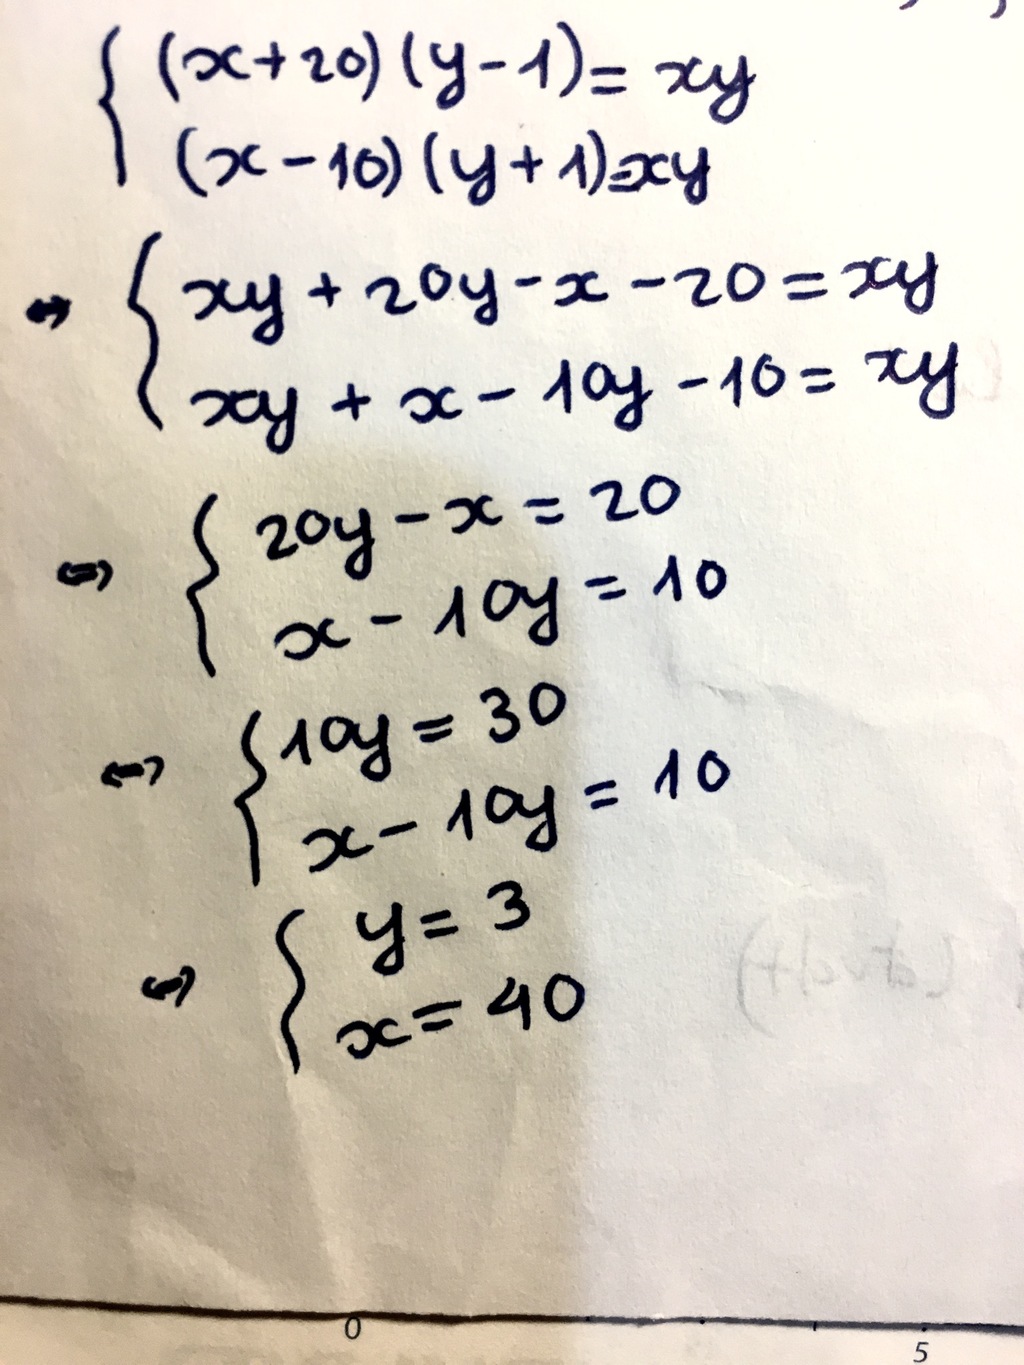 (x+20)(y-1)= xy
(x-10)(y+1)=xy
⇔ xy + 20y - x - 20 = xy
xy + x - 10y - 10 = xy
⇔ 20y - x = 20
x - 10y = 10
⇔ 10y = 30
x - 10y = 10
⇔ y = 3
x = 40
0
5